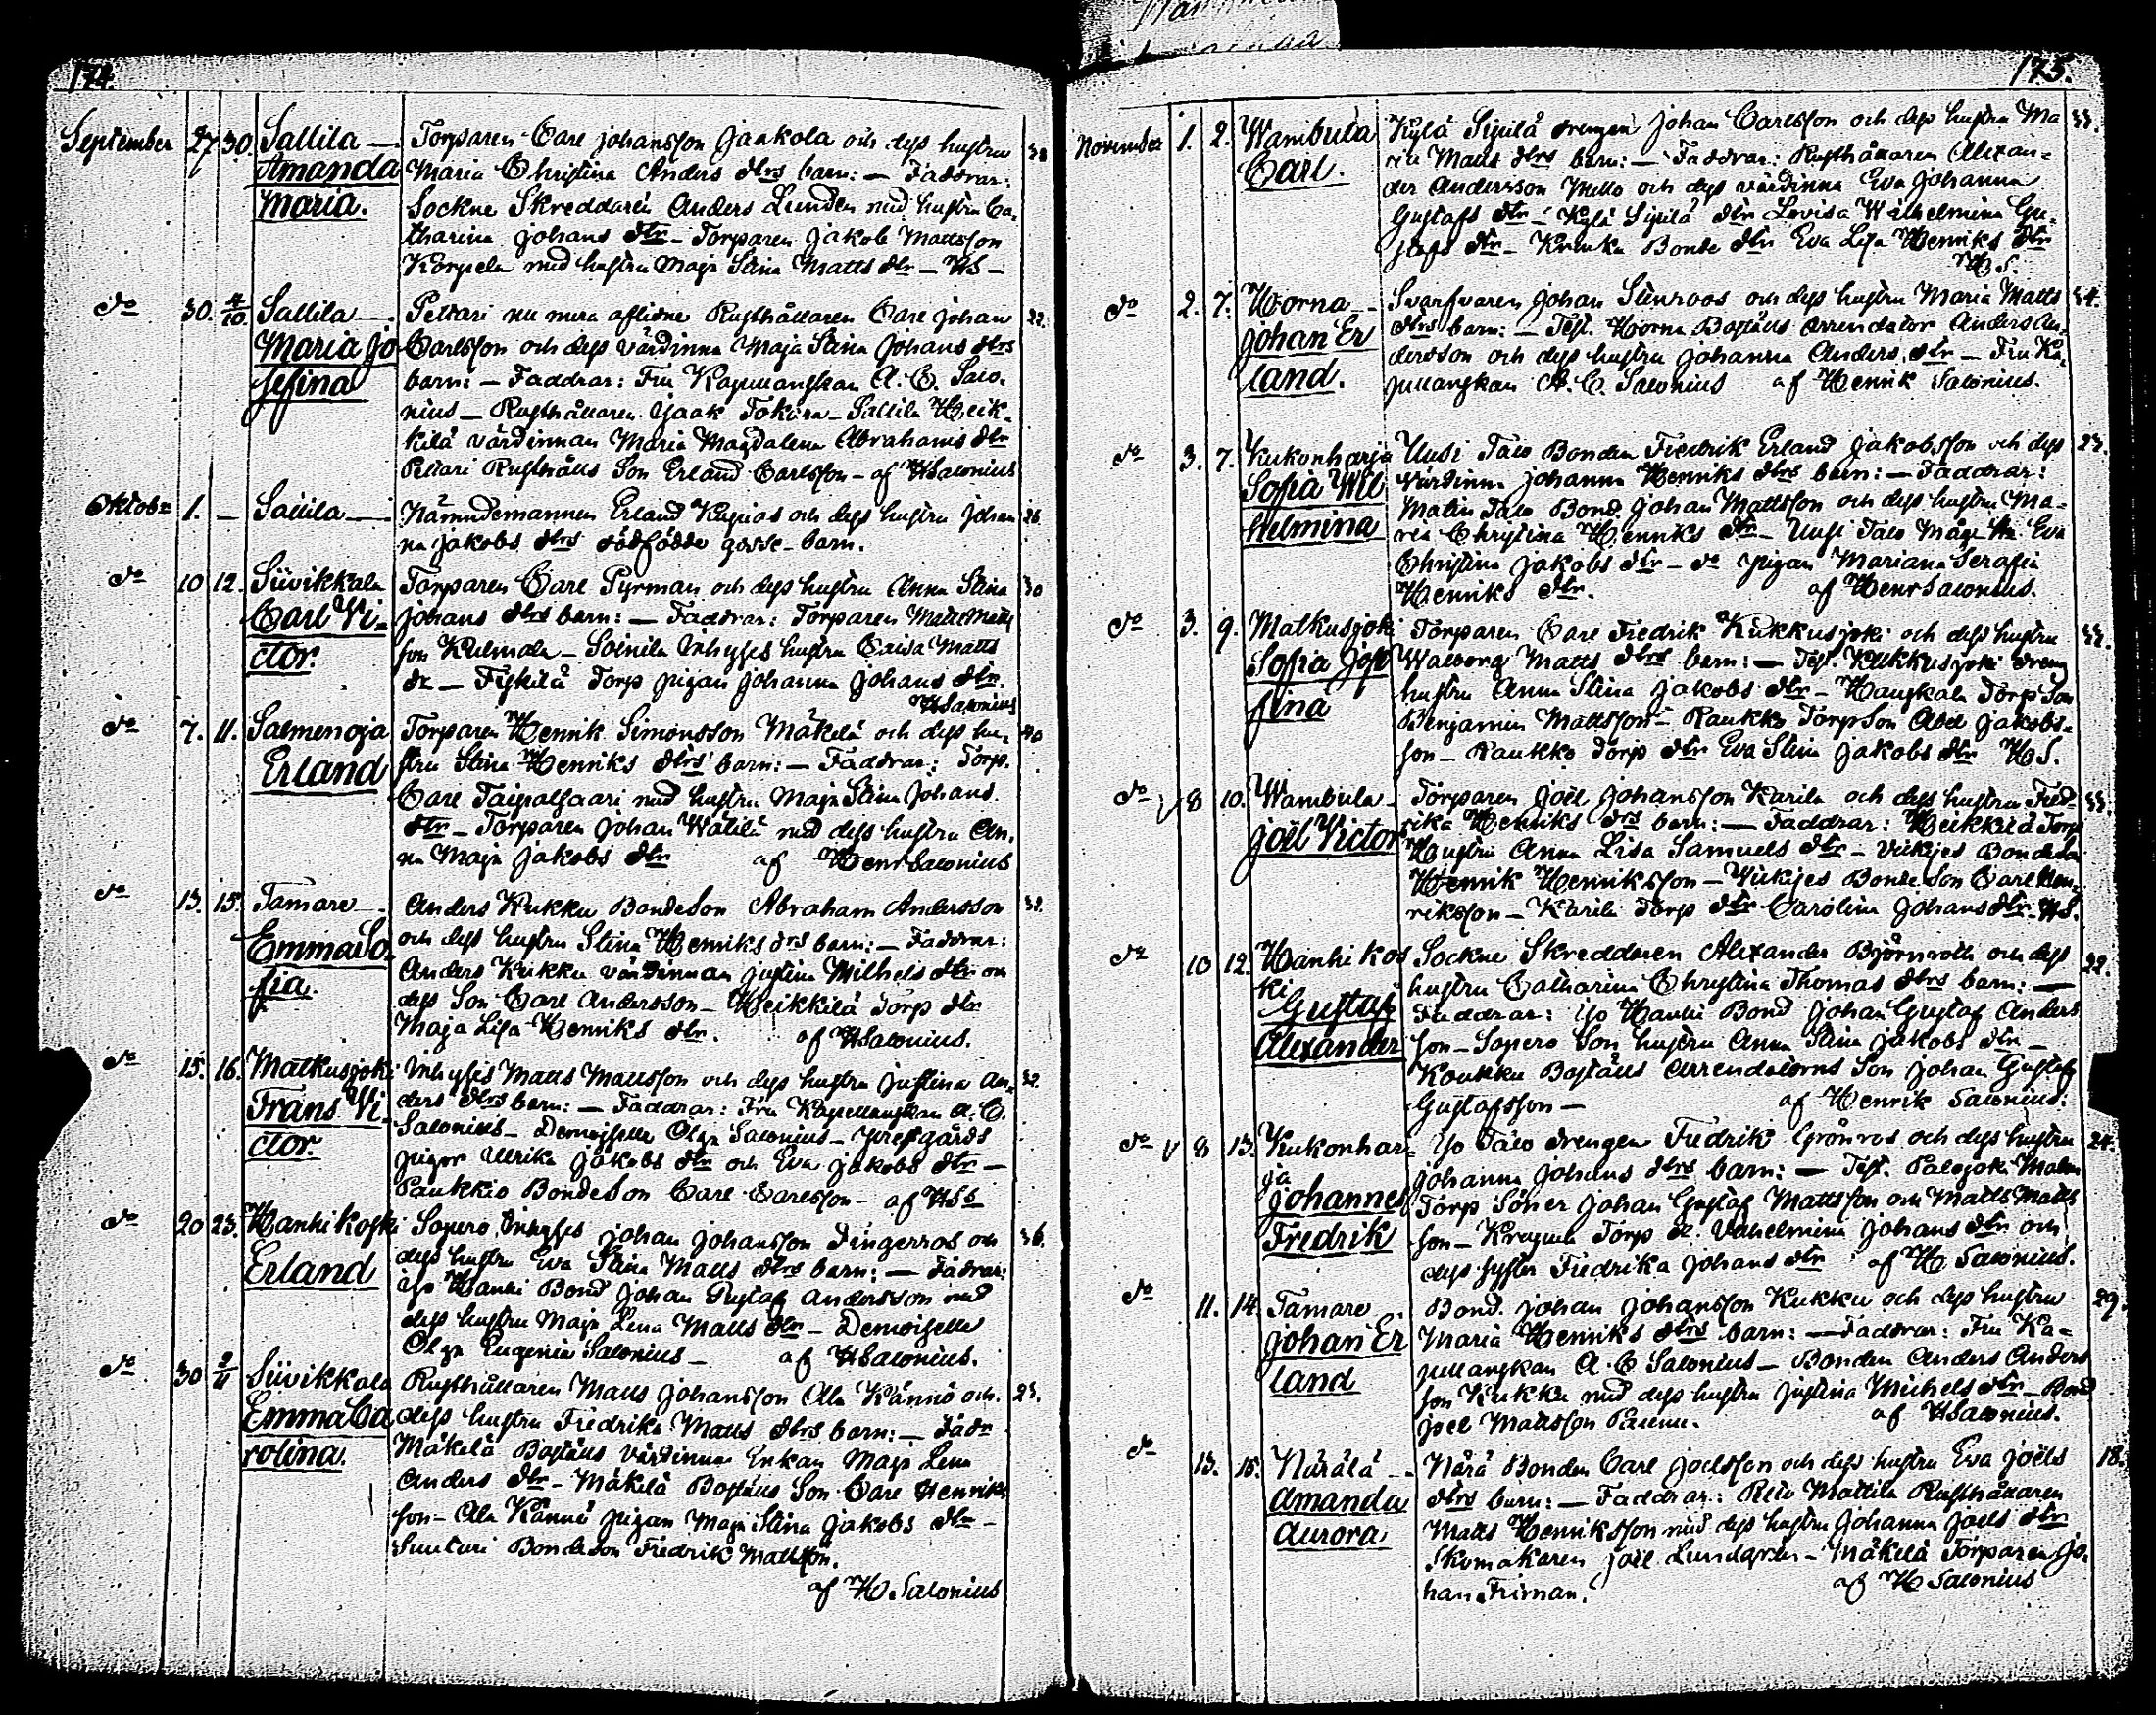 174.
September 27 30. Sallila — Torparen Carl Johansson Jaakola och dess hustru 38
Amanda Maria Christina Anders dtrs barn: — Faddrar:
Maria. Sockne Skreddaren Anders Lunden med hustru Ca-
tharina Johans dtr — Torparen Jakob Mattsson
Korpela med hustru Maja Stina Matts dtr — HS —
do 30. 4/10. Sallila — Peltari nu mera aflidne Rusthållaren Carl Johan 22.
Maria Jo- Carlsson och dess värdinna Maja Stina Johans dtrs
sefina barn: — Faddrar: Fru Kapellanskan A. C. Salo-
nius — Rusthållaren Isaak Tokura — Sallila Heik-
kilä värdinnan Maria Magdalena Abrahams dtr
Peltari Rusthålls Son Erland Carlsson — af HSalonius
Oktober 1. — Sallila — Nämndemannen Erland Kupias och dess hustru Johan- 26.
na Jakobs dtrs dödfödde gosse-barn.
do 10 12. Siivikkala Torparen Carl Pyrman och dess hustru Anna Stina 30
Carl Vi- Johans dtrs barn: — Faddrar: Torparen Matts Matts
ctor. son Kulmala — Soinila Inhyses hustru Caisa Matts
dr — Fiskilä Torp pigan Johanna Johans dtr.
HSalonius
do 7. 11. Salmenoja Torparen Henrik Simonsson Mäkelä och dess hu- 40
Erland stru Stina Henriks dtrs barn: — Faddrar: Torp.
Carl Taipalsaari med hustru Maja Stina Johans
dtr — Torparen Johan Wälilä med dess hustru An-
na Maja Jakobs dtr af Henr Salonius
do 13. 15. Tamare — Anders Kukku Bondeson Abraham Andersson 32.
Emma So- och dess hustru Stina Henriks drs barn: — Faddrar:
fia. Anders Kukku värdinnan Justina Michels dtr och
dess Son Carl Andersson — Heikkilä Torp dtr
Maja Lisa Henriks dtr. af HSalonius.
do 15. 16. Matkusjoki Inhyses Matts Mattsson och dess hustru Justina An- 32.
Frans Vi- ders dtrs barn: — Faddrar: Fru Kapellanskan A. C.
ctor. Salonius — Demoiselle Olga Salonius — Prestgårds
pigor Ulrika Jakobs dtr och Eva Jakobs dtr —
Paukkio Bondeson Carl Carlsson — af HSs
do 20 23. Hanhikoski Sopero Inhyses Johan Johansson Tingerroos och 36.
Erland dess hustru Eva Stina Matts dtrs barn: — Faddrar:
Iso Hanhi Bond Johan Gustaf Andersson med
dess hustru Maja Lena Matts dtr — Demoiselle
Olga Eugenia Salonius — af HSalonius.
do 30 2/11 Siivikkala Rusthållaren Matts Johansson Ala Kännö och 23.
Emma Ca- dess hustru Fredrika Matts dtrs barn: — Fadr
rolina. Mäkelä Boställs värdinna Enkan Maja Lena
Anders dtr — Mäkelä Boställs Son Carl Henriks
son — Ala Kännö pigan Maja Stina Jakobs dtr —
Suutari Bondeson Fredrik Mattsson.
af H Salonius
175.
November 1. 2. Wambula Kylä Sipilä drengen Johan Carlsson och dess hustru Ma 33.
Carl. ria Matts dtrs barn: — Faddrar: Rusthållaren Alexan-
der Andersson Mello och dess värdinna Eva Johanna
Gustafs dtr — Kylä Sipilä dtr Lovisa Wilhelmina Gu-
stafs dtr — Krouka Bonde dtr Eva Lisa Henriks dtr
HS.
do 2. 7. Horna — Svarfvaren Johan Stenroos och dess hustru Maria Matts 34.
Johan Er dtrs barn: — Test. Horna Boställs Arrendator Anders An-
land. dersson och dess hustru Johanna Anders dtr — Fru Ka-
pellanskan A. C. Salonius af Henrik Salonius.
do 3. 7. Kukonharja Uusi Talo Bonden Fredrik Erland Jakobsson och dess 23.
Sofia Wil värdinna Johanna Henriks dtrs barn: — Faddrar:
helmina Matin Talo Bond. Johan Mattsson och dess hustru Ma-
ria Christina Henriks dtr — Uusi Talo Måg Eva
Christina Jakobs dtr — do pigan Mariana Serafia
Henriks dtr. af Henr Salonius.
do 3. 9. Matkusjoki Torparen Carl Fredrik Kukkusjoki och dess hustru
Sofia Jose Walborg Matts dtrs barn: — Test. Kukkusjoki dreng
fina hustru Anna Stina Jakobs dtr — Haugkala Torp Son
Benjamin Mattsson — Raukko Torp Son Abel Jakobs-
son — Raukko Torp dtr Eva Stina Jakobs dtr HS.
do 8 10. Wambula — Torparen Joël Johansson Karila och dess hustru Fred- 33.
Joël Victor rika Henriks drs barn: — Faddrar: Heikkilä Torp
Hustru Anna Lisa Samuels dtr — Bondeson
Henrik Henriksson — Bonde Son Carl Hen-
riksson — Karila Torp dtr Carolina Johans dtr HS.
do 10 12. Hanhikos Sockne Skreddaren Alexander Björnroth och dess 22.
ki hustru Catharina Christina Thomas dtrs barn: —
Gustaf Faddrar: Iso Hanhi Bond Johan Gustaf Anders
Alexander son — Sopero Son hustru Anna Stina Jakobs dtr —
Koukku Boställs Arrendatorns Son Johan Gustaf
Gustafsson — af Henrik Salonius.
do 8 13. Kukonhar- Iso Talo drengen Fredrik Grönros och dess hustru 24.
ja Johanna Johans dtrs barn: — Test. Palojoki Malm
Johannes Torp Söner Johan Gustaf Mattsson och Matts Matts
Fredrik son — Torp d. Vilhelmina Johans dtr och
dess syster Fredrika Johans dtr af H Salonius.
do 11. 14. Tamare Bond. Johan Johansson Kukku och dess hustru 29.
Johan Er Maria Henriks dtrs barn: — Faddrar: Fru Ka-
land pellanskan A. C Salonius — Bonden Anders Anders
son Kukku med dess hustru Justina Michels dtr — Bond
Joel Mattsson Paunu. af HSalonius.
do 13. 15. Närälä — Närä Bonden Carl Joelsson och dess hustru Eva Joëls 18.
Amanda dtrs barn: — Faddrar: Mattila Rusthållaren
Aurora Matts Henriksson med dess hustru Johanna Joels dtr
Skomakaren Joël Lundgren — Mäkelä Torparen Jo-
han Friman. af H Salonius